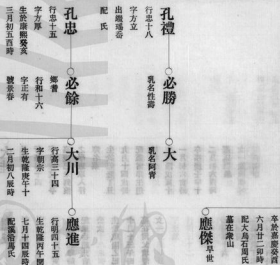 卒於嘉慶癸
六月廿二卯時
配大烏石周氏
墓在衆山
應傑早世
孔禮
行忠十八
字方立
出繼瑤岳
配 氏
必勝
乳名性壽
大
乳名阿育
孔忠
行忠十五
字方厚
生於康熙癸亥
三月初五酉時
必餘
鄉耆
行和十六
字正有
號景春
大川
行高三十四
字朝宗
生乾隆庚午十
二月初八辰時
應進
行明四十五
生乾隆丙午閏
七月十四辰時
配溪沿馬氏